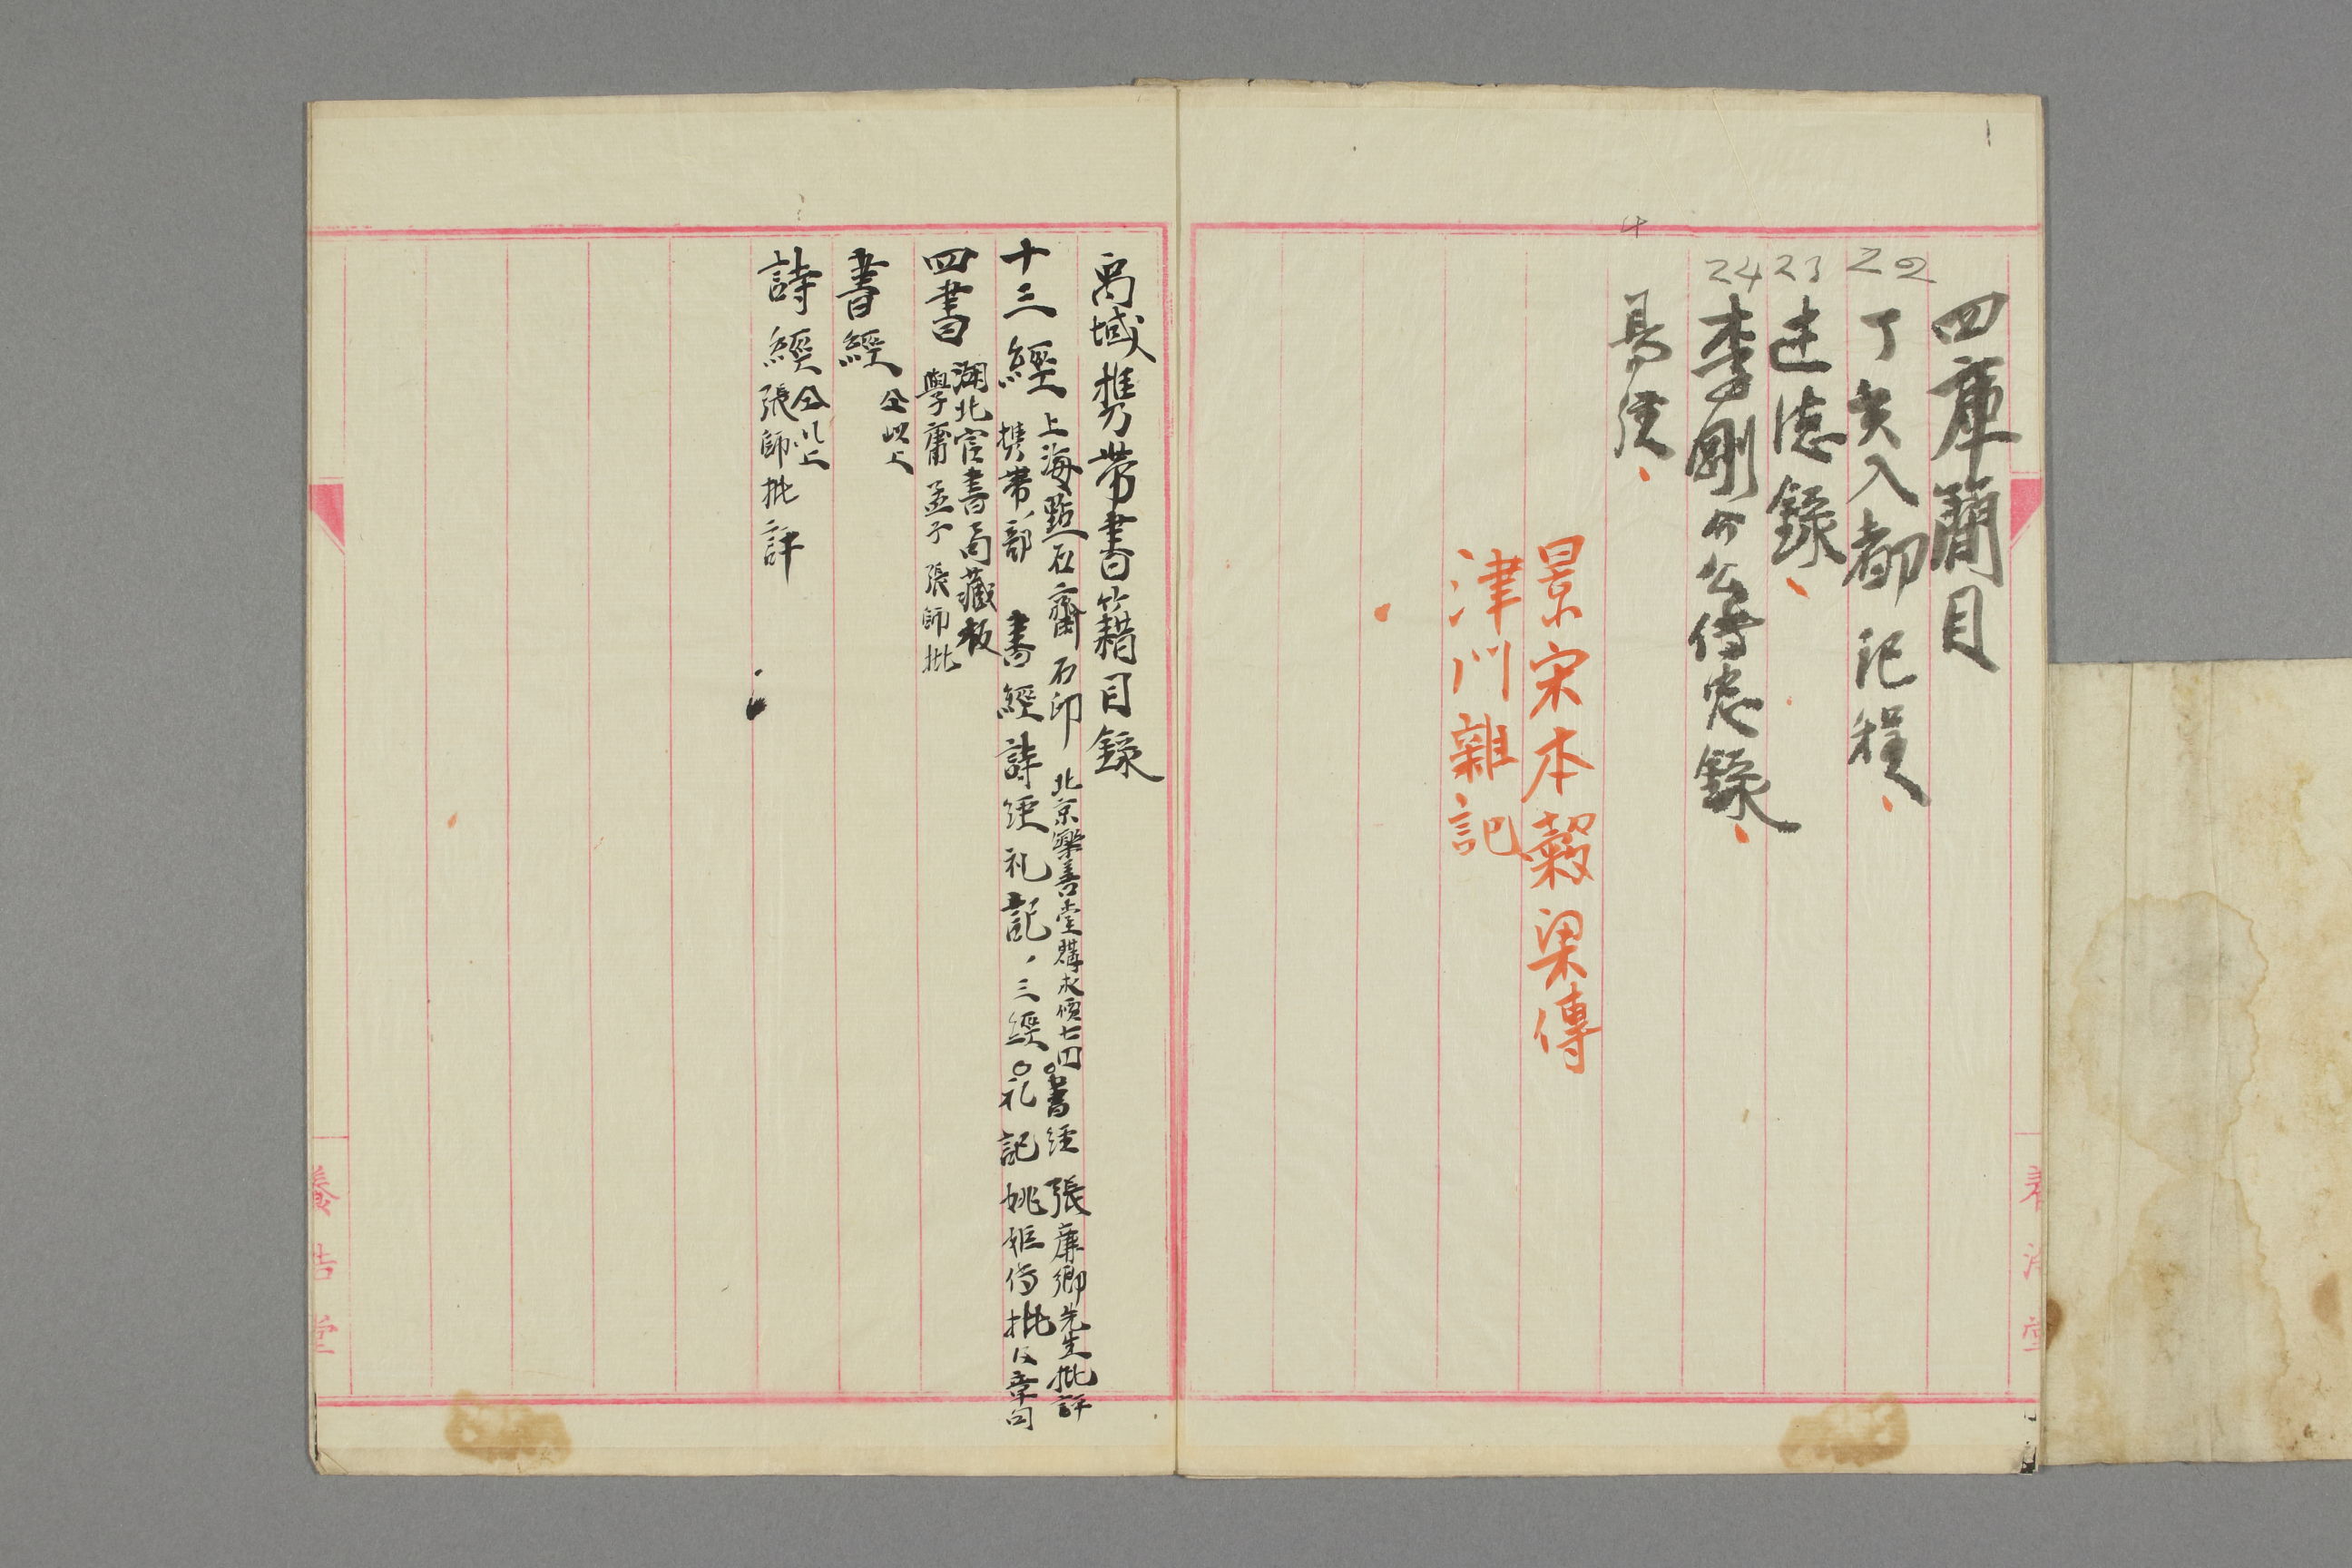 四庫簡目
22
丁亥入都記程
23
述德錄
24
李剛介公傳忠錄
4
易經
景宋本穀梁傳
津門雜記
禹域携帯書籍目録
十三經
上海點石齋石印 北京樂善堂購求價七円○書経 張廉卿先生批評
携帯部 書經 詩経 礼記、三經○礼記 姚姫傳批及章句
四書
湖北官書局藏板
學庸 孟子 張師批
書經 仝以上
詩經
仝以上
張師批評
養浩堂